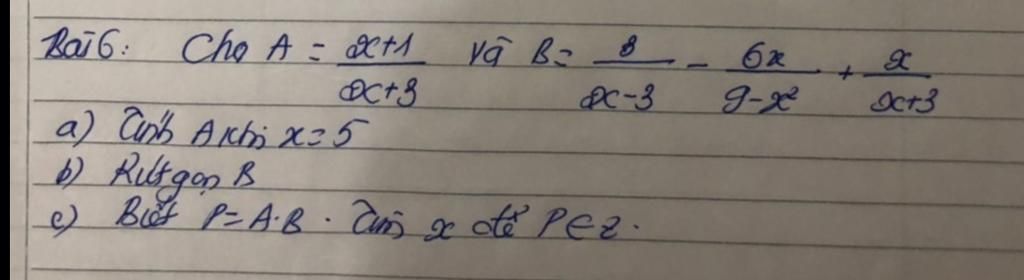 Bài 6: Cho A = \frac{x+1}{x+3} và B = \frac{3}{x-3} - \frac{6x}{9-x²} + \frac{x}{x+3}
a) Tính A khi x = 5
b) Rút gọn B
c) Biết P = A.B. Tìm x để P ∈ Z.